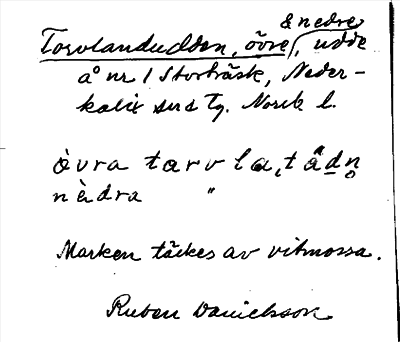 & nedre
Torvlandudden, övre, udde
å nr 1 Storträsk, Neder-
kalix sns Tg. Norrb l.
òvra tarvla,tådn̥
nèdra "
Marken täckes av vitmossa.
Ruben Danielsson